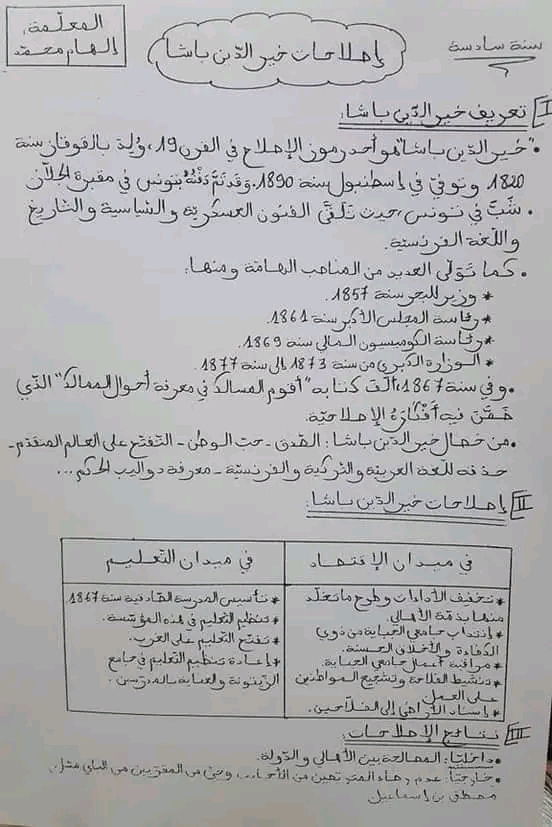 المعلّمة:
إلهام محمّد
إصلاحات خير الدّين باشا
سنة سادسة
I تعريف خير الدّين باشا:
• "خير الدّين باشا" هو أحد رموز الإصلاح في القرن 19، وُلِدَ بالقوقاز سنة
1820 وتوفّي في إسطنبول سنة 1890. وقد تمّ دفنُهُ بتونس في مقبرة الجلّاز
• شبَّ في تونس، حيث تلقّى الفنون العسكريّة والسّياسية والتّاريخ
واللّغة الفرنسيّة.
• كما تولّى العديد من المناصب الهامّة ومنها:
* وزير للبحر سنة 1857.
* رئاسة المجلس الأكبر سنة 1861.
* رئاسة الكوميسيون المالي سنة 1869.
* الوزارة الكبرى من سنة 1873 إلى سنة 1877.
• وفي سنة 1867، ألّف كتابه "أقوم المسالك في معرفة أحوال الممالك" الذي
ضمّن فيه أفكارَهُ الإصلاحيّة.
• من خصال خير الدّين باشا: الصّدق - حبّ الوطن - التّفتّح على العالم المتقدّم -
حذقه للّغة العربيّة والتّركية والفرنسيّة - معرفة دواليب الحكم...
II إصلاحات خير الدّين باشا:
في ميدان الإقتصاد
في ميدان التّعليم
* تخفيف الأداءات وطرح ما تخلّد
منها بذمّة الأهالي.
* إنتداب جامعي الجباية من ذوي
الكفاءة والأخلاق الحسنة.
* مراقبة أعمال جامعي الجباية.
* تنشيط الفلاحة وتشجيع المواطنين
على العمل
* إسناد الأراضي إلى الفلّاحين.
* تأسيس المدرسة الصّادقية سنة 1867.
* تنظيم التّعليم في هذه المؤسّسة.
* تفتّح التّعليم على الغرب.
* إعادة تنظيم التّعليم في جامع
الزّيتونة والعناية بالمدرّسين.
III نتائج الإصلاحات:
• داخليّا: المصالحة بين الأهالي والدّولة.
• خارجيّا: عدم رضاء من الأجانب وحتّى من المقرّبين من الباي مثل
مصطفى بن إسماعيل